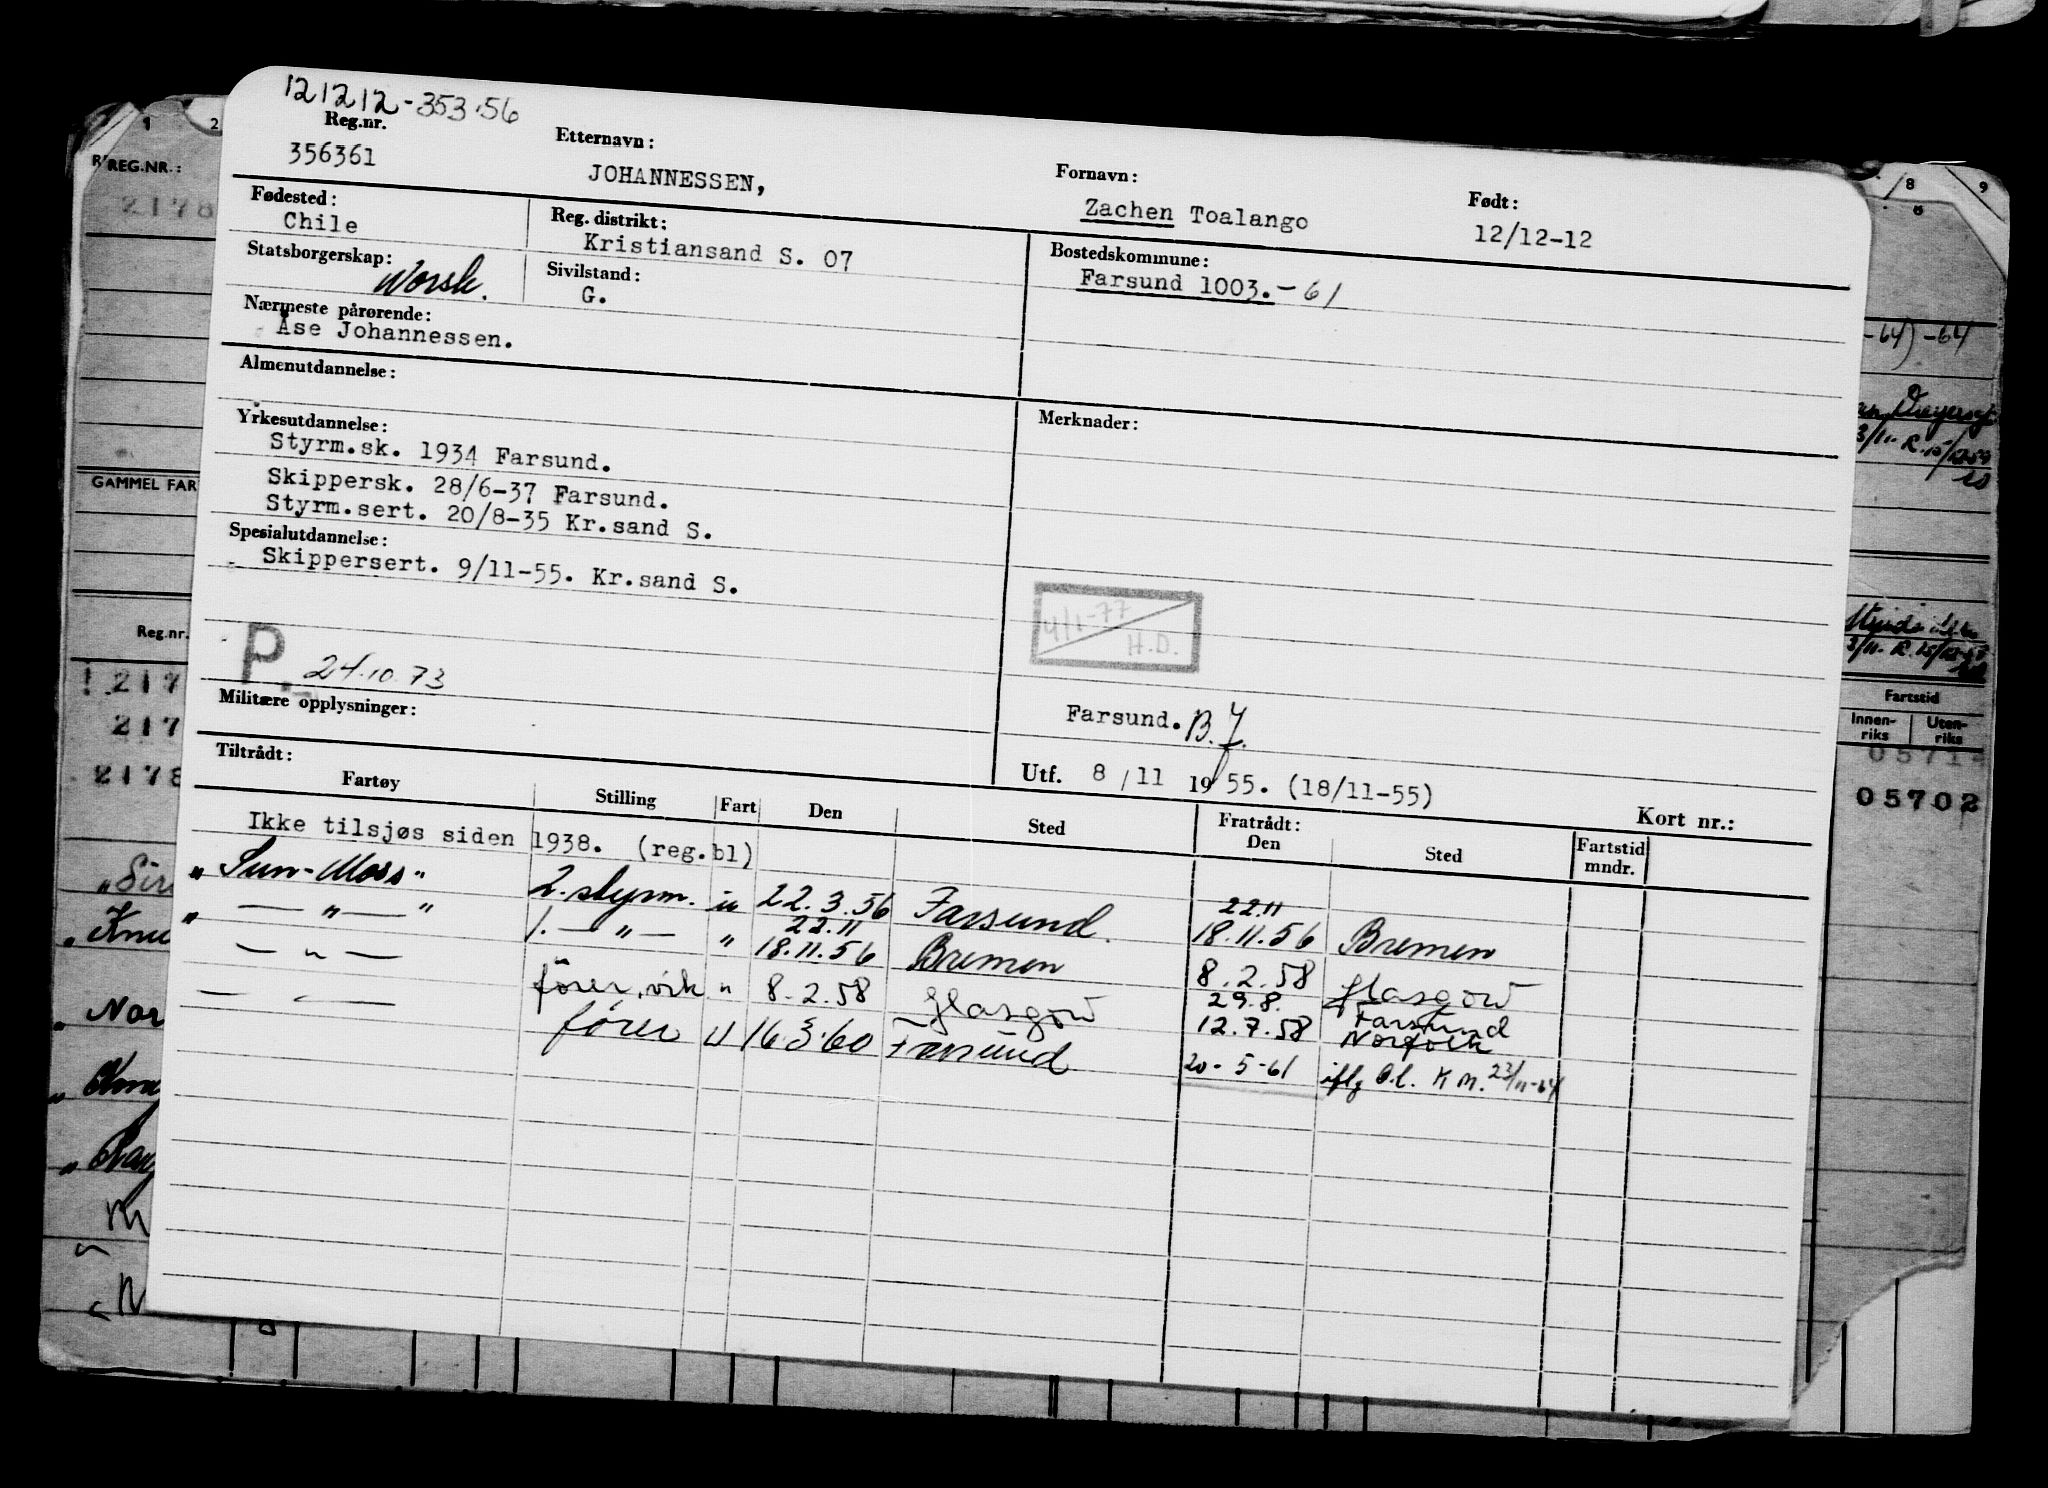 121212-353.56
Reg.nr.
356361
Etternavn:
JOHANNESSEN,
Fornavn:
Zachen Toalango
Født:
12/12-12
Fødested:
Chile
Reg. distrikt:
Kristiansand S. 07
Bostedskommune:
Farsund 1003.-61
Statsborgerskap:
Norsk.
Sivilstand:
G.
Nærmeste pårørende:
Åse Johannessen.
Almenutdannelse:
Yrkesutdannelse:
Styrm.sk. 1934 Farsund.
Skippersk. 28/6-37 Farsund.
Styrm.sert. 20/8-35 Kr.sand S.
Spesialutdannelse:
Skippersert. 9/11-55. Kr.sand S.
P.
24.10.73
Militære opplysninger:
Merknader:
4/1-77
H.D.
Farsund. B.J.
Utf. 8/11 1955. (18/11-55)
Kort nr.:
Tiltrådt:
Fartøy Stilling Fart Den Sted
Fratrådt:
Den Sted Fartstid mndr.
Ikke tilsjøs siden 1938. (reg.bl)
"Sun-Moss" 2. styrm. u 22.3.56 Farsund. 22.11 18.11.56 Bremen
" — " — " 1. — " — " 22.11 18.11.56 Bremen 8.2.58 Glasgow
— " — fører, vik " 8.2.58 Glasgow 29.8. Farsund 12.7.58 Norfolk
— " — fører U 16.3.60 Farsund 20-5-61 iflg O.l. K M. 23/11-64
1 2
REG.NR.:
2178
GAMMEL FAR
Reg.nr.
217
217
2178
8 9
-64) -64
Fartstid
Innen-riks Uten-riks
0571
05702
"Knu
"Nor